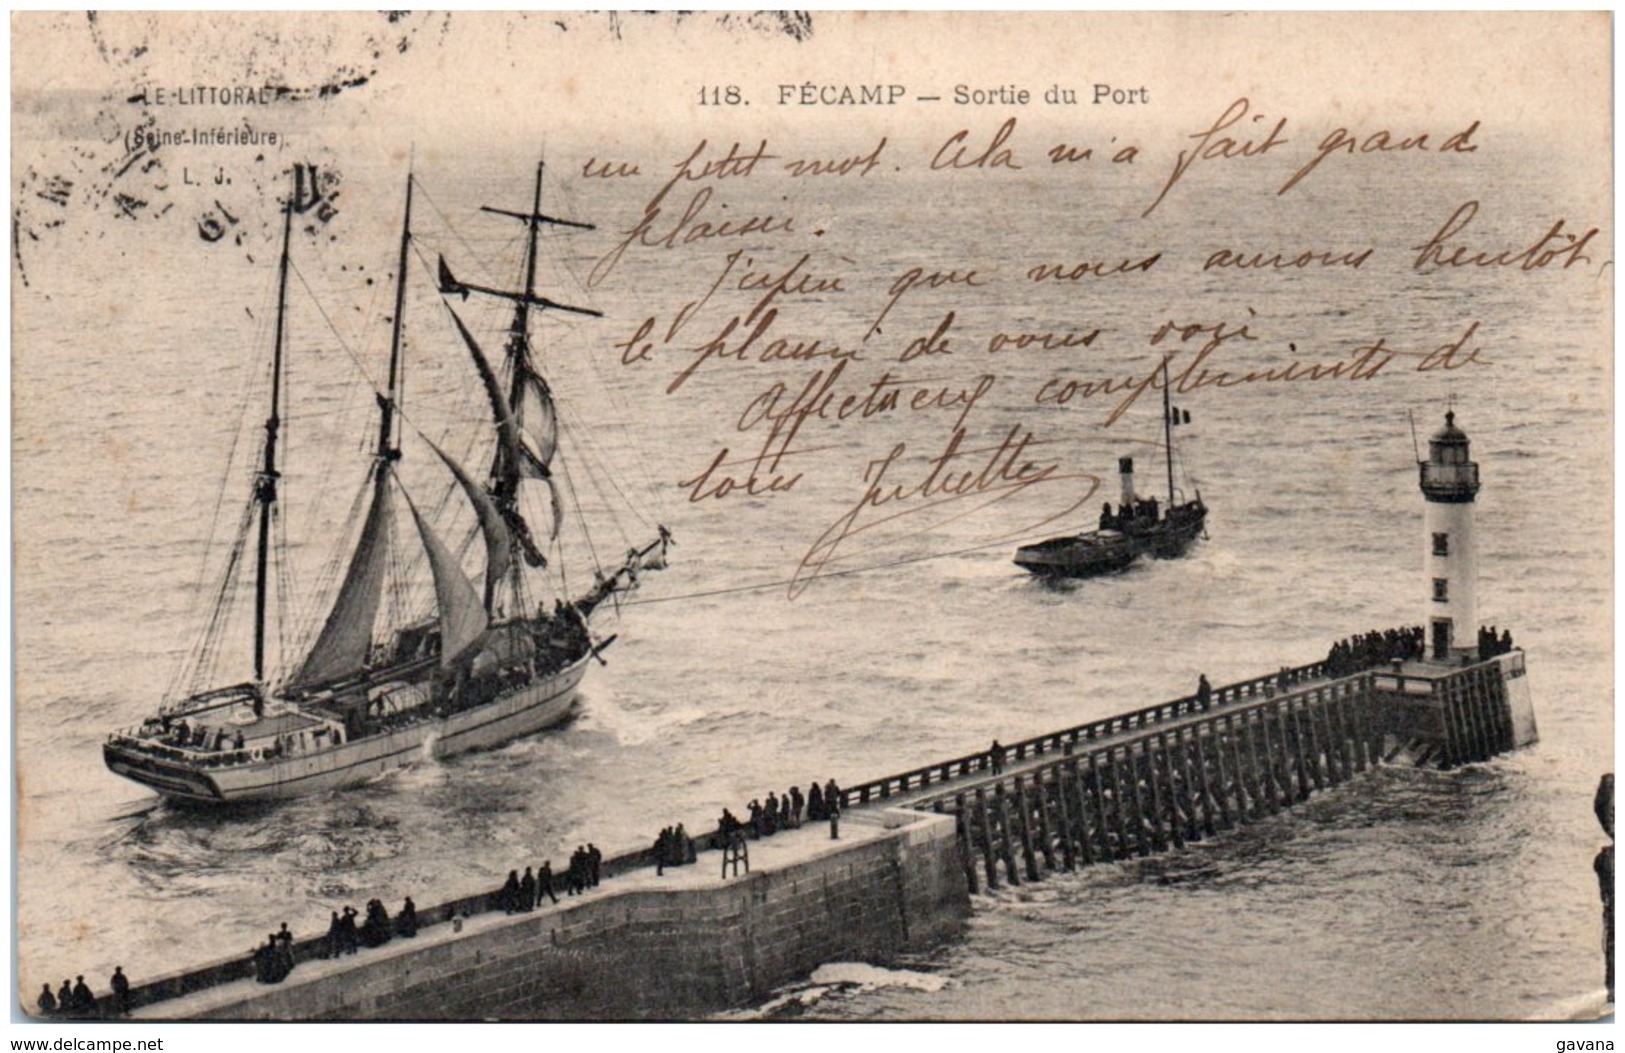 LE LITTORAL
(Seine-Inférieure)
L. J.
118. FÉCAMP — Sortie du Port
un petit mot. Cela m'a fait grand
plaisir.
J'espère que nous aurons bientôt
le plaisir de vous voir
Affectueux compliments de
tous Juliette
www.delcampe.net
gavana